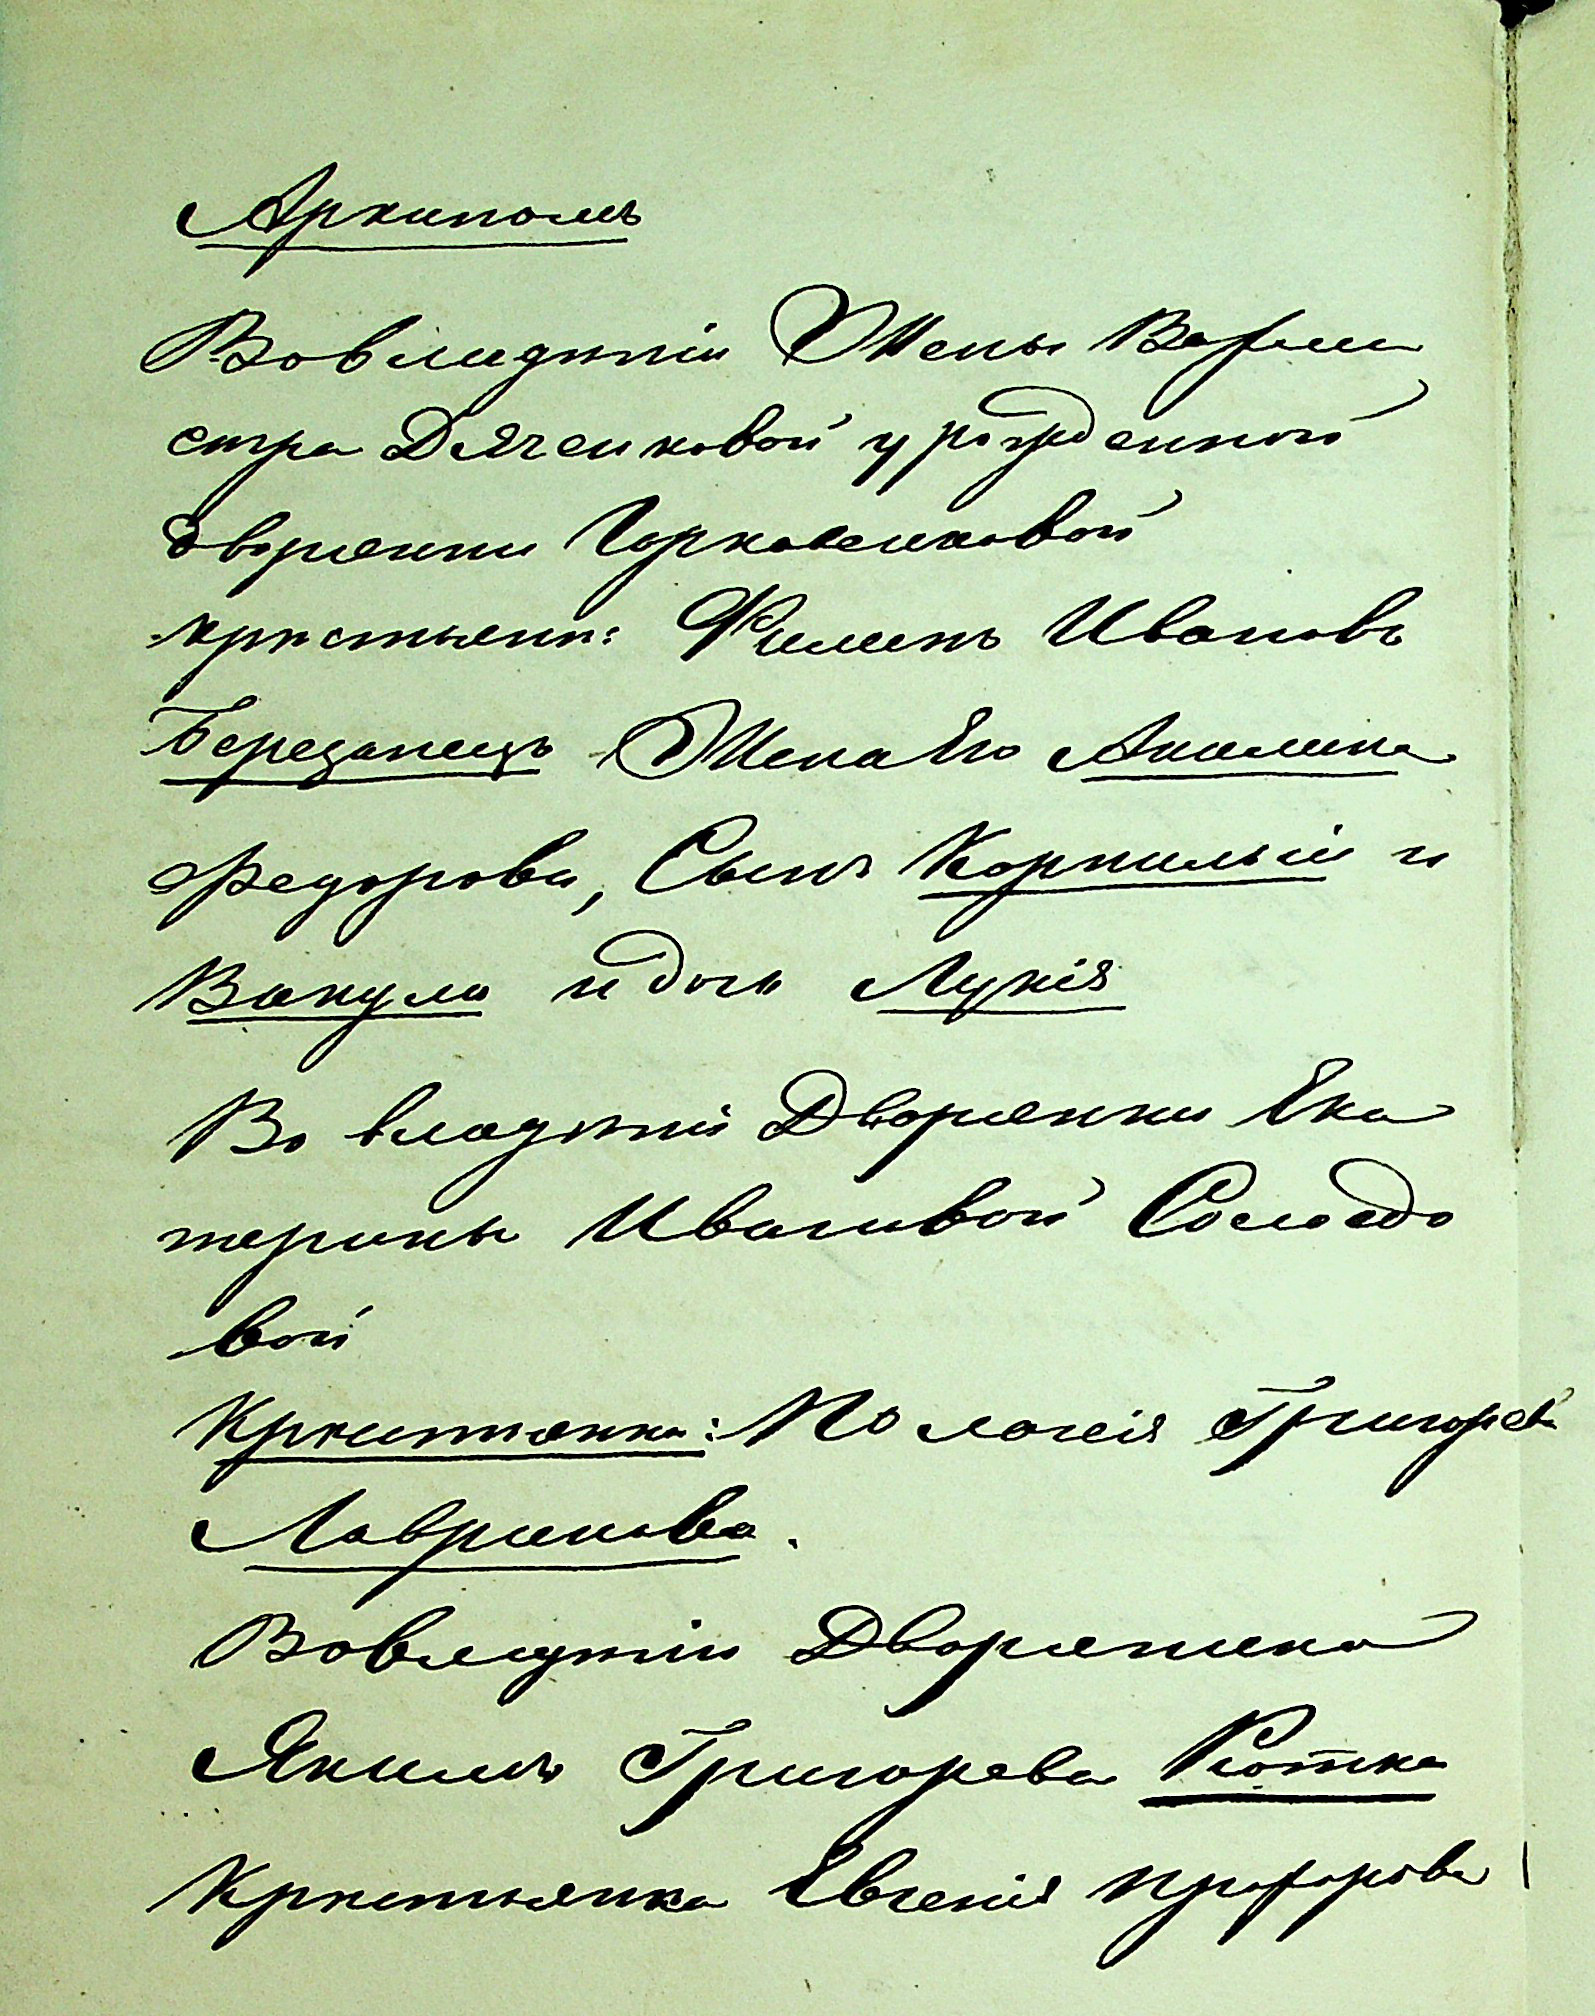 Архипомъ
Вовладѣніи Жены Вахми
стра Дяченковой урожденной
дворянки Горковенковой
крѣстьянъ: Филипъ Ивановъ
Березанецъ Жена Его Акилина
Федорова, Сынъ Корнилий и
Вакула и дочь Лукія
Во владѣніи Дворянки Ека
терины Ивановой Солодо
вой
Крѣстьянка: Полагея Григорьева
Лаврикова.
Вовладѣніи Дворянина
Якима Григорева Котка
Крѣстьянка Евгенія Прохорова